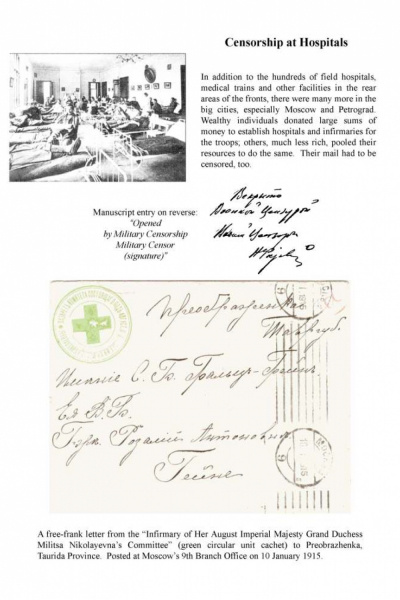 Censorship at Hospitals
In addition to the hundreds of field hospitals,
medical trains and other facilities in the rear
areas of the fronts, there were many more in the
big cities, especially Moscow and Petrograd.
Wealthy individuals donated large sums of
money to establish hospitals and infirmaries for
the troops; others, much less rich, pooled their
resources to do the same. Their mail had to be
censored, too.
Manuscript entry on reverse:
"Opened
by Military Censorship
Military Censor
(signature)"
Вскрыто
Военной Цензурой
Цензор
Преображенка
Имение
Ея
Антоновна
Гейне
A free-frank letter from the "Infirmary of Her August Imperial Majesty Grand Duchess
Militsa Nikolayevna's Committee" (green circular unit cachet) to Preobrazhenka,
Taurida Province. Posted at Moscow's 9th Branch Office on 10 January 1915.